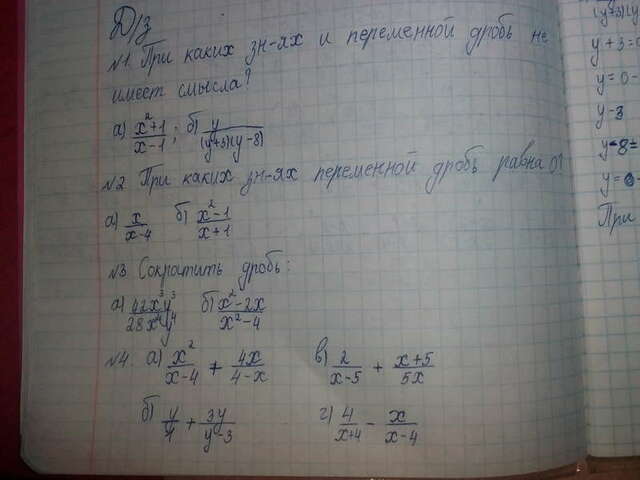 Д/З
№1. При каких зн-ях и переменной дробь не
имеет смысла?
а) (x²+1)/(x-1); б) y/((y+3)(y-8))
№2 При каких зн-ях переменной дробь равна 0?
а) x/(x-4) б) (x²-1)/(x+1)
№3 Сократить дробь:
а) 42x³y³/28x⁴y⁴ б) (x²-2x)/(x²-4)
№4. а) x²/(x-4) + 4x/(4-x) в) 2/(x-5) + (x+5)/5x
б) y/4 + 3y/(y-3) г) 4/(x+4) - x/(x-4)
(y+3)(y
y+3=0
y=0-
y-3
y-8=
y=0-
При